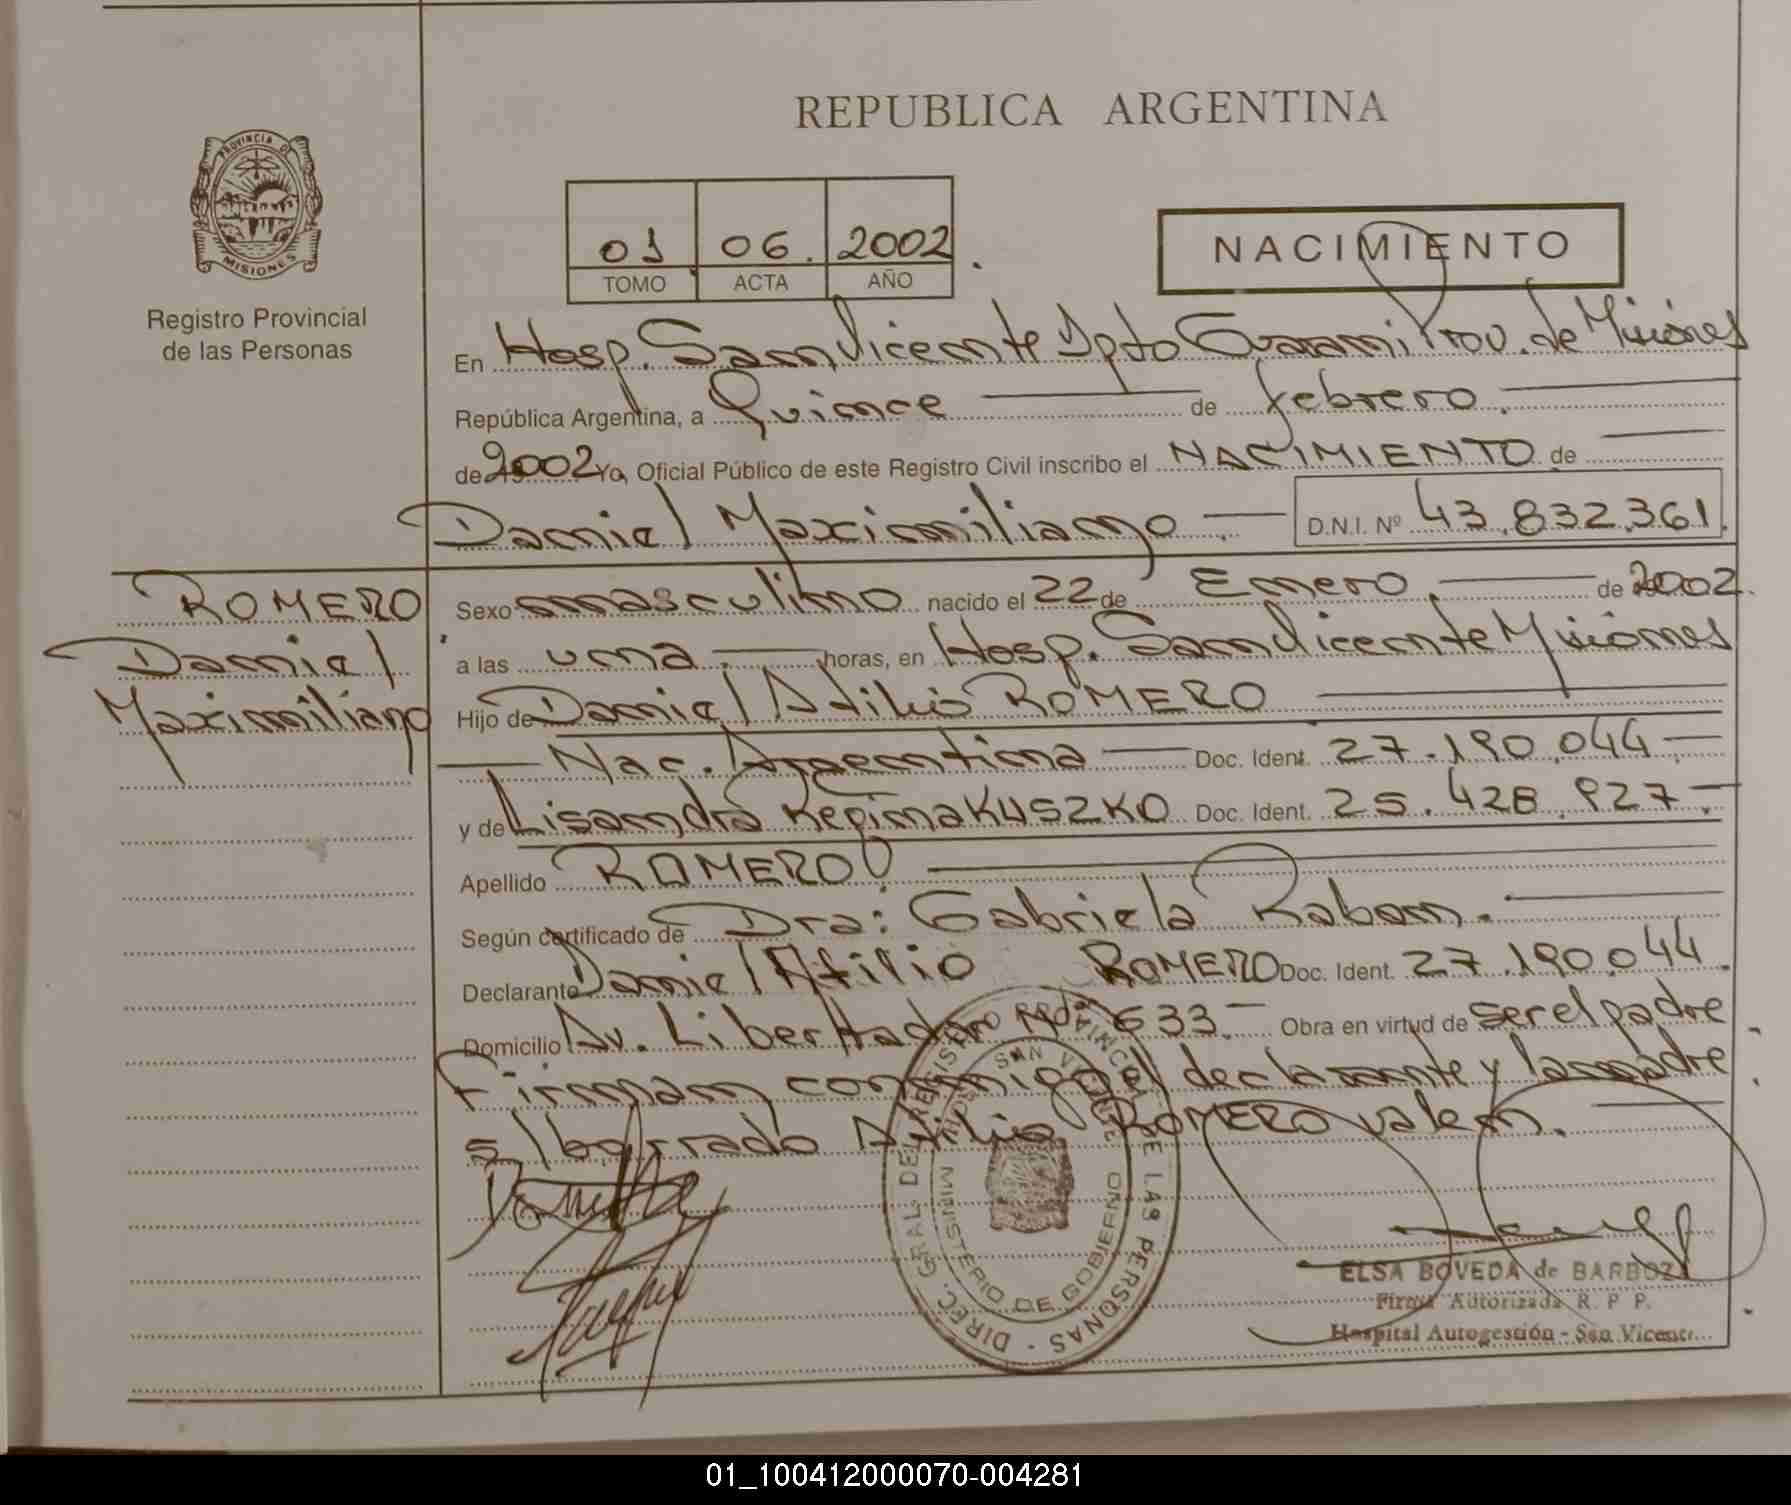 REPUBLICA ARGENTINA
PROVINCIA DE
MISIONES
Registro Provincial
de las Personas
01 06. 2002.
TOMO ACTA AÑO
NACIMIENTO
En Hosp. San Vicente Dpto Guarani Prov. de Misiones
República Argentina, a Quince de febrero.
de 2002 Yo, Oficial Público de este Registro Civil inscribo el NACIMIENTO de
Daniel Maximiliano. D.N.I. Nº 43.832.361.
ROMERO
Daniel
Maximiliano
Sexo masculino nacido el 22 de Enero. de 2002.
a las una. horas, en Hosp. San Vicente Misiones
Hijo de Daniel Atilio ROMERO
Nac. Argentina Doc. Ident. 27.190.044
y de Lisandra Regina KUSZKO Doc. Ident. 25.428.927.
Apellido ROMERO
Según certificado de Dra: Gabriela Raban.
Declarante Daniel Atilio ROMERO Doc. Ident. 27.190.044.
Domicilio Av. Libertador 633. Obra en virtud de ser el padre
Firman conmigo el declarante y la madre
s/borrado Atilio ROMERO valen.
DIREC. GRAL. DEL REGISTRO PROVINCIAL DE LAS PERSONAS
MINISTERIO DE GOBIERNO
SAN VICENTE
ELSA BOVEDA de BARBOZA
Firma Autorizada R. P. P.
Hospital Autogestión - San Vicente
01_100412000070-004281